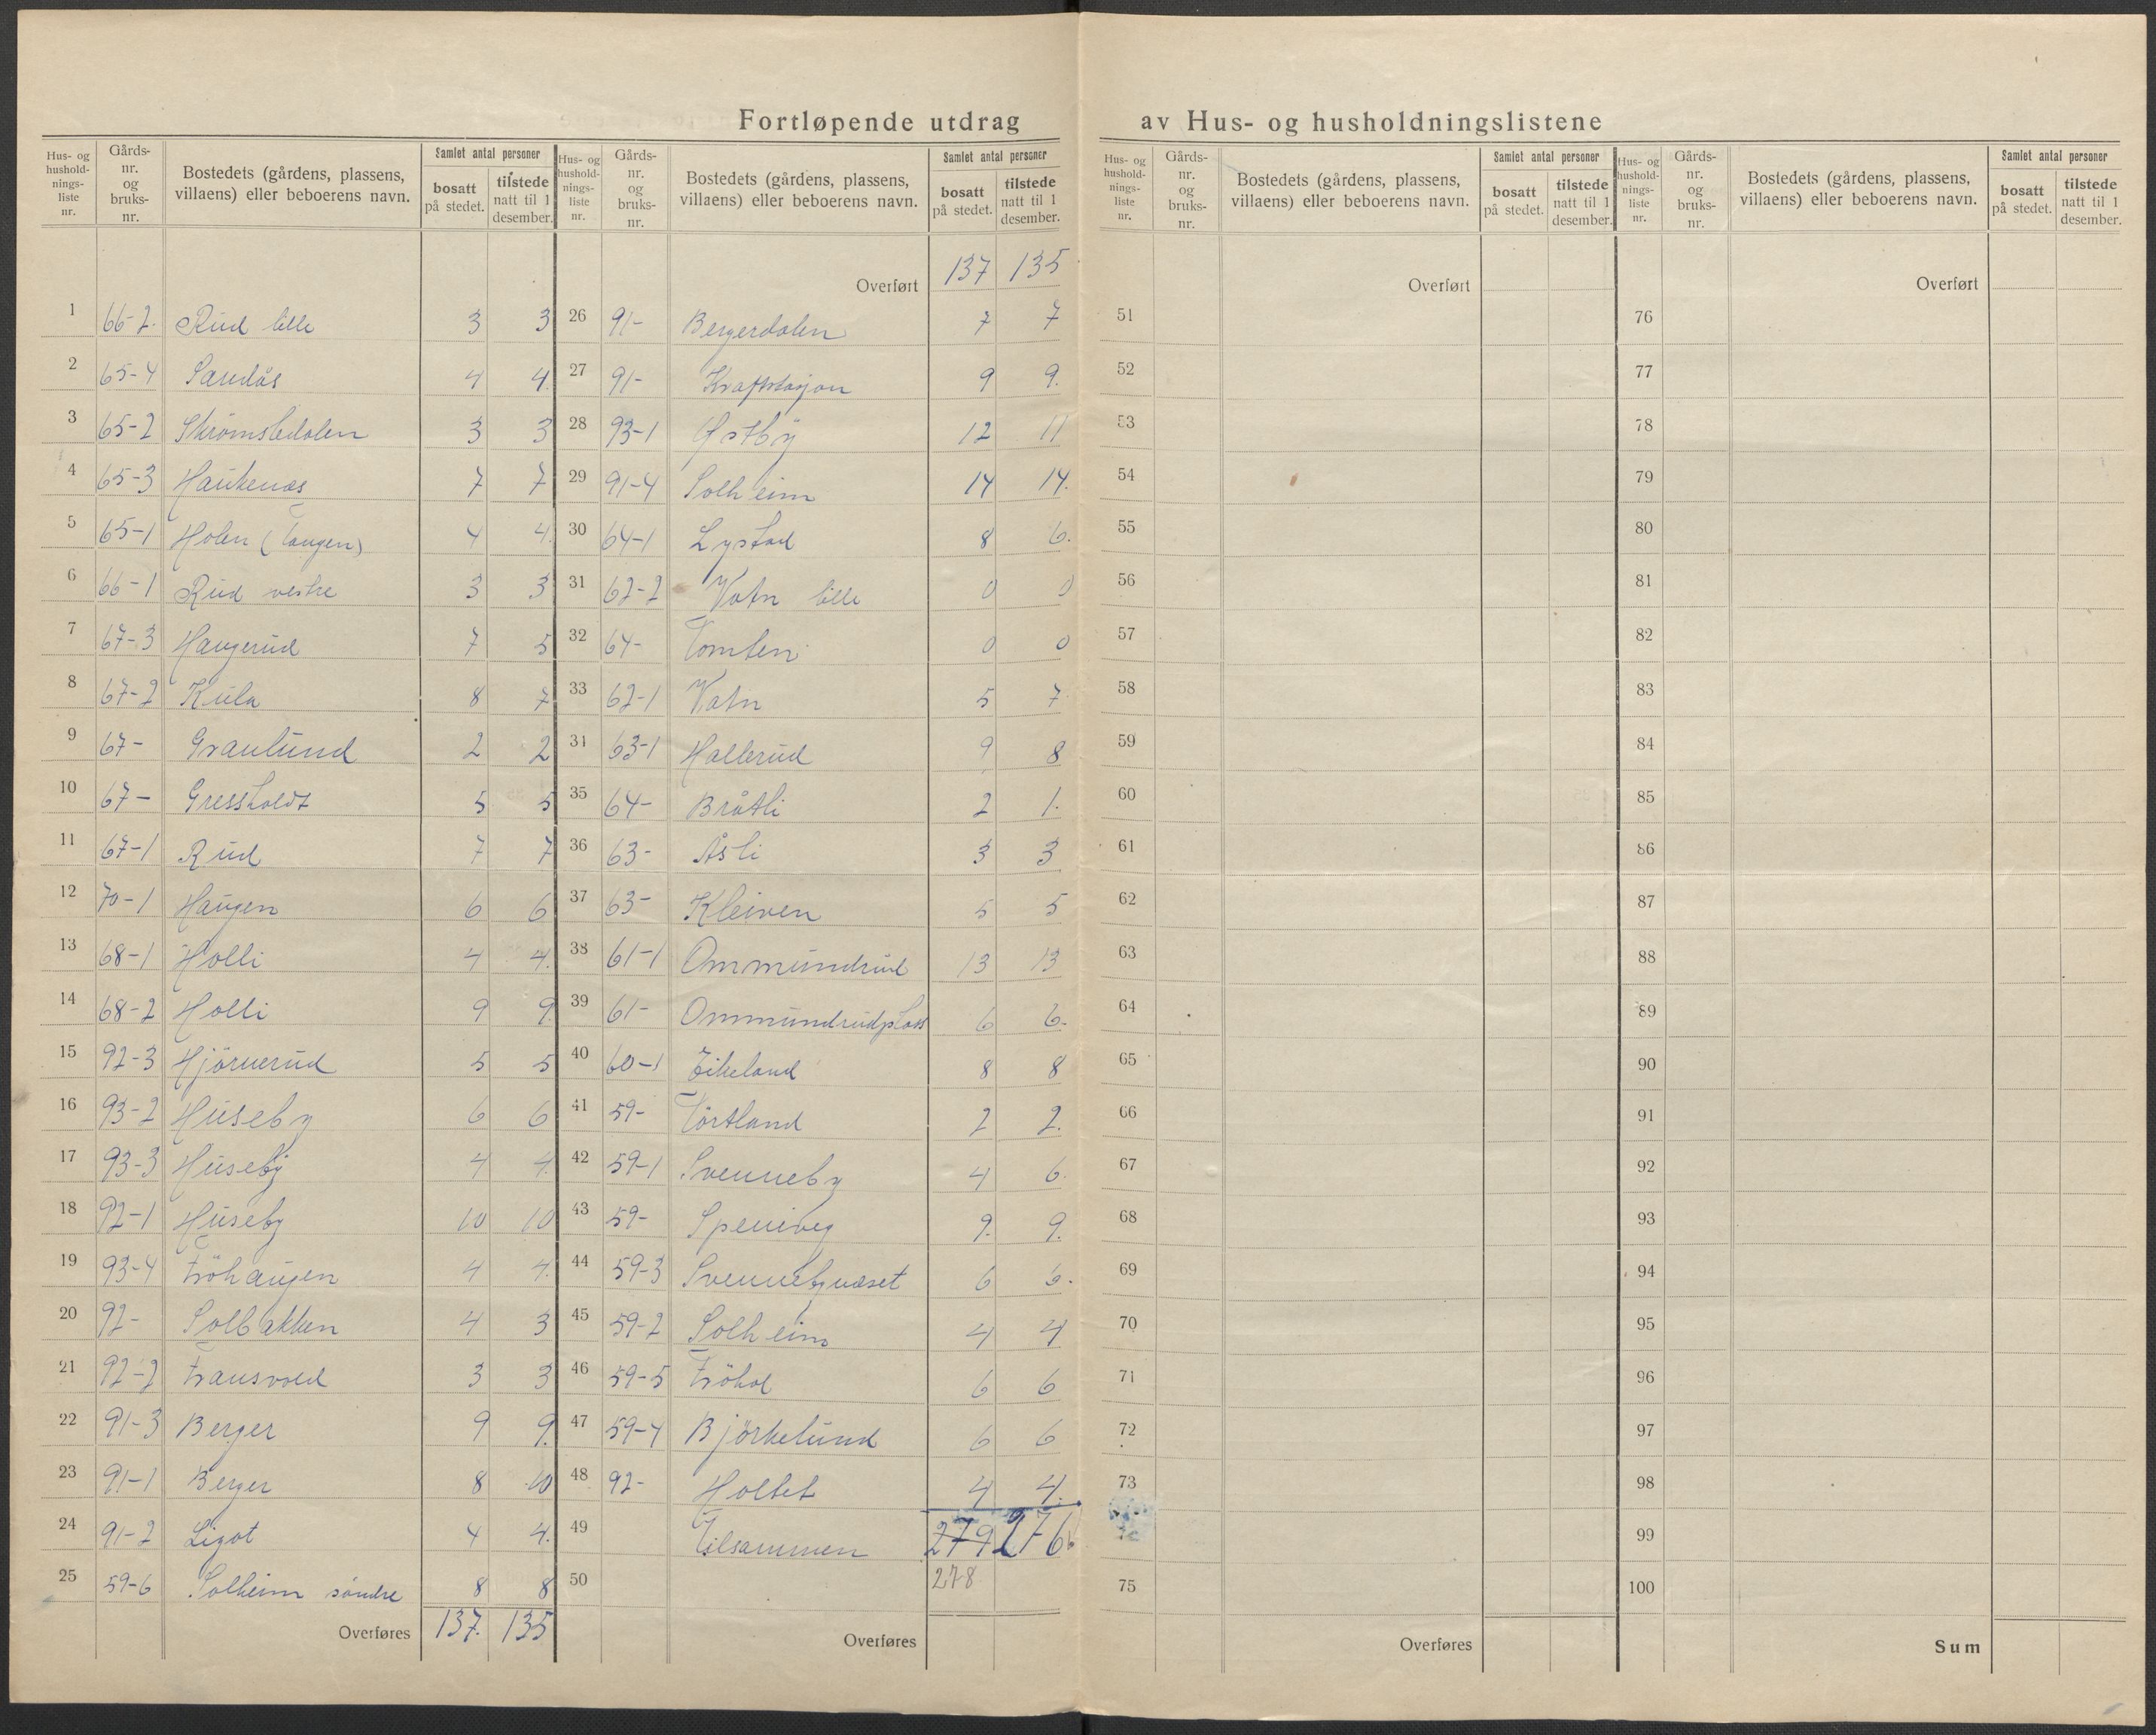 Fortløpende utdrag av Hus- og husholdningslistene
Hus- og husholdningsliste nr.
Gårdsnr. og bruksnr.
Bostedets (gårdens, plassens, villaens) eller beboerens navn.
Samlet antal personer
bosatt på stedet.
tilstede natt til 1 desember.
1 66-2. Rud lille 3 3
2 65-4 Sandås 4 4.
3 65-2 Skrömsledalen 3 3
4 65-3 Haukenæs 7 7
5 65-1 Holen (Tangen) 4 4.
6 66-1 Rud vestre 3 3
7 67-3 Haugerud 7 5
8 67-2 Kula 8 7
9 67- Granlund 2 2
10 67- Gressholdt 5 5
11 67-1 Rud 7 7
12 70-1 Haugen 6 6
13 68-1 Holli 4 4.
14 68-2 Holli 9 9.
15 92-3 Hjörnerud 5 5
16 93-2 Huseby 6 6
17 93-3 Huseby 4 4.
18 92-1 Huseby 10 10
19 93-4 Fröhaugen 4 4.
20 92- Solbakken 4 3
21 92-2 Transvold 3 3
22 91-3 Berger 9 9.
23 91-1 Berger 8 10
24 91-2 Ligot 4 4.
25 59-6 Solheim söndre 8 8
Overføres 137. 135
Hus- og husholdningsliste nr.
Gårdsnr. og bruksnr.
Bostedets (gårdens, plassens, villaens) eller beboerens navn.
Samlet antal personer
bosatt på stedet.
tilstede natt til 1 desember.
Overført 137 135
26 91- Bergerdalen 7 7
27 91- Kraftstasjon 9 9.
28 93-1 Østby 12 11
29 91-4 Solheim 14 14.
30 64-1 Lystad 8 6.
31 62-2 Vatn lille 0 0
32 64- Tomten 0 0
33 62-1 Vatn 5 7
34 63-1 Hallerud 9 8
35 64- Bråtli 2 1.
36 63- Åsli 3 3
37 63- Kleiven 5 5
38 61-1 Ommundrud 13 13
39 61- Ommundrudplass 6 6.
40 60-1 Eikeland 8 8
41 59- Törtland 2 2.
42 59-1 Svenneby 4 6.
43 59- Speniveg 9. 9.
44 59-3 Svennebynæset 6 6.
45 59-2 Solheim 4 4
46 59-5 Fröhol 6 6
47 59-4 Björkelund 6 6
48 92- Holtet 4 4.
49 Tilsammen 279 276.
50 278
Overføres
Hus- og husholdningsliste nr.
Gårdsnr. og bruksnr.
Bostedets (gårdens, plassens, villaens) eller beboerens navn.
Samlet antal personer
bosatt på stedet.
tilstede natt til 1 desember.
Overført
51
52
53
54
55
56
57
58
59
60
61
62
63
64
65
66
67
68
69
70
71
72
73
75
Overføres
Hus- og husholdningsliste nr.
Gårdsnr. og bruksnr.
Bostedets (gårdens, plassens, villaens) eller beboerens navn.
Samlet antal personer
bosatt på stedet.
tilstede natt til 1 desember.
Overført
76
77
78
79
80
81
82
83
84
85
86
87
88
89
90
91
92
93
94
95
96
97
98
99
100
Sum